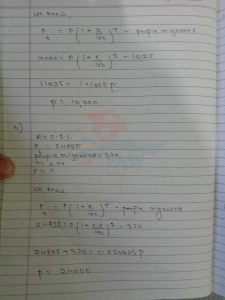 We know,
P_t = P(1 + R/100)^T - people migrated
10000 = P(1 + 5/100)^2 - 1025
11025 = 1.1025 P
P = 10,000
b)
R = 2.5%
P_t = 24895
people migrated = 320
T = 2
P = ?
We know
P_t = P(1 + R/100)^T - people migrated
24895 = P(1 + 2.5/100)^2 - 320
24895 + 320 = 1.050625 P
P = 24000